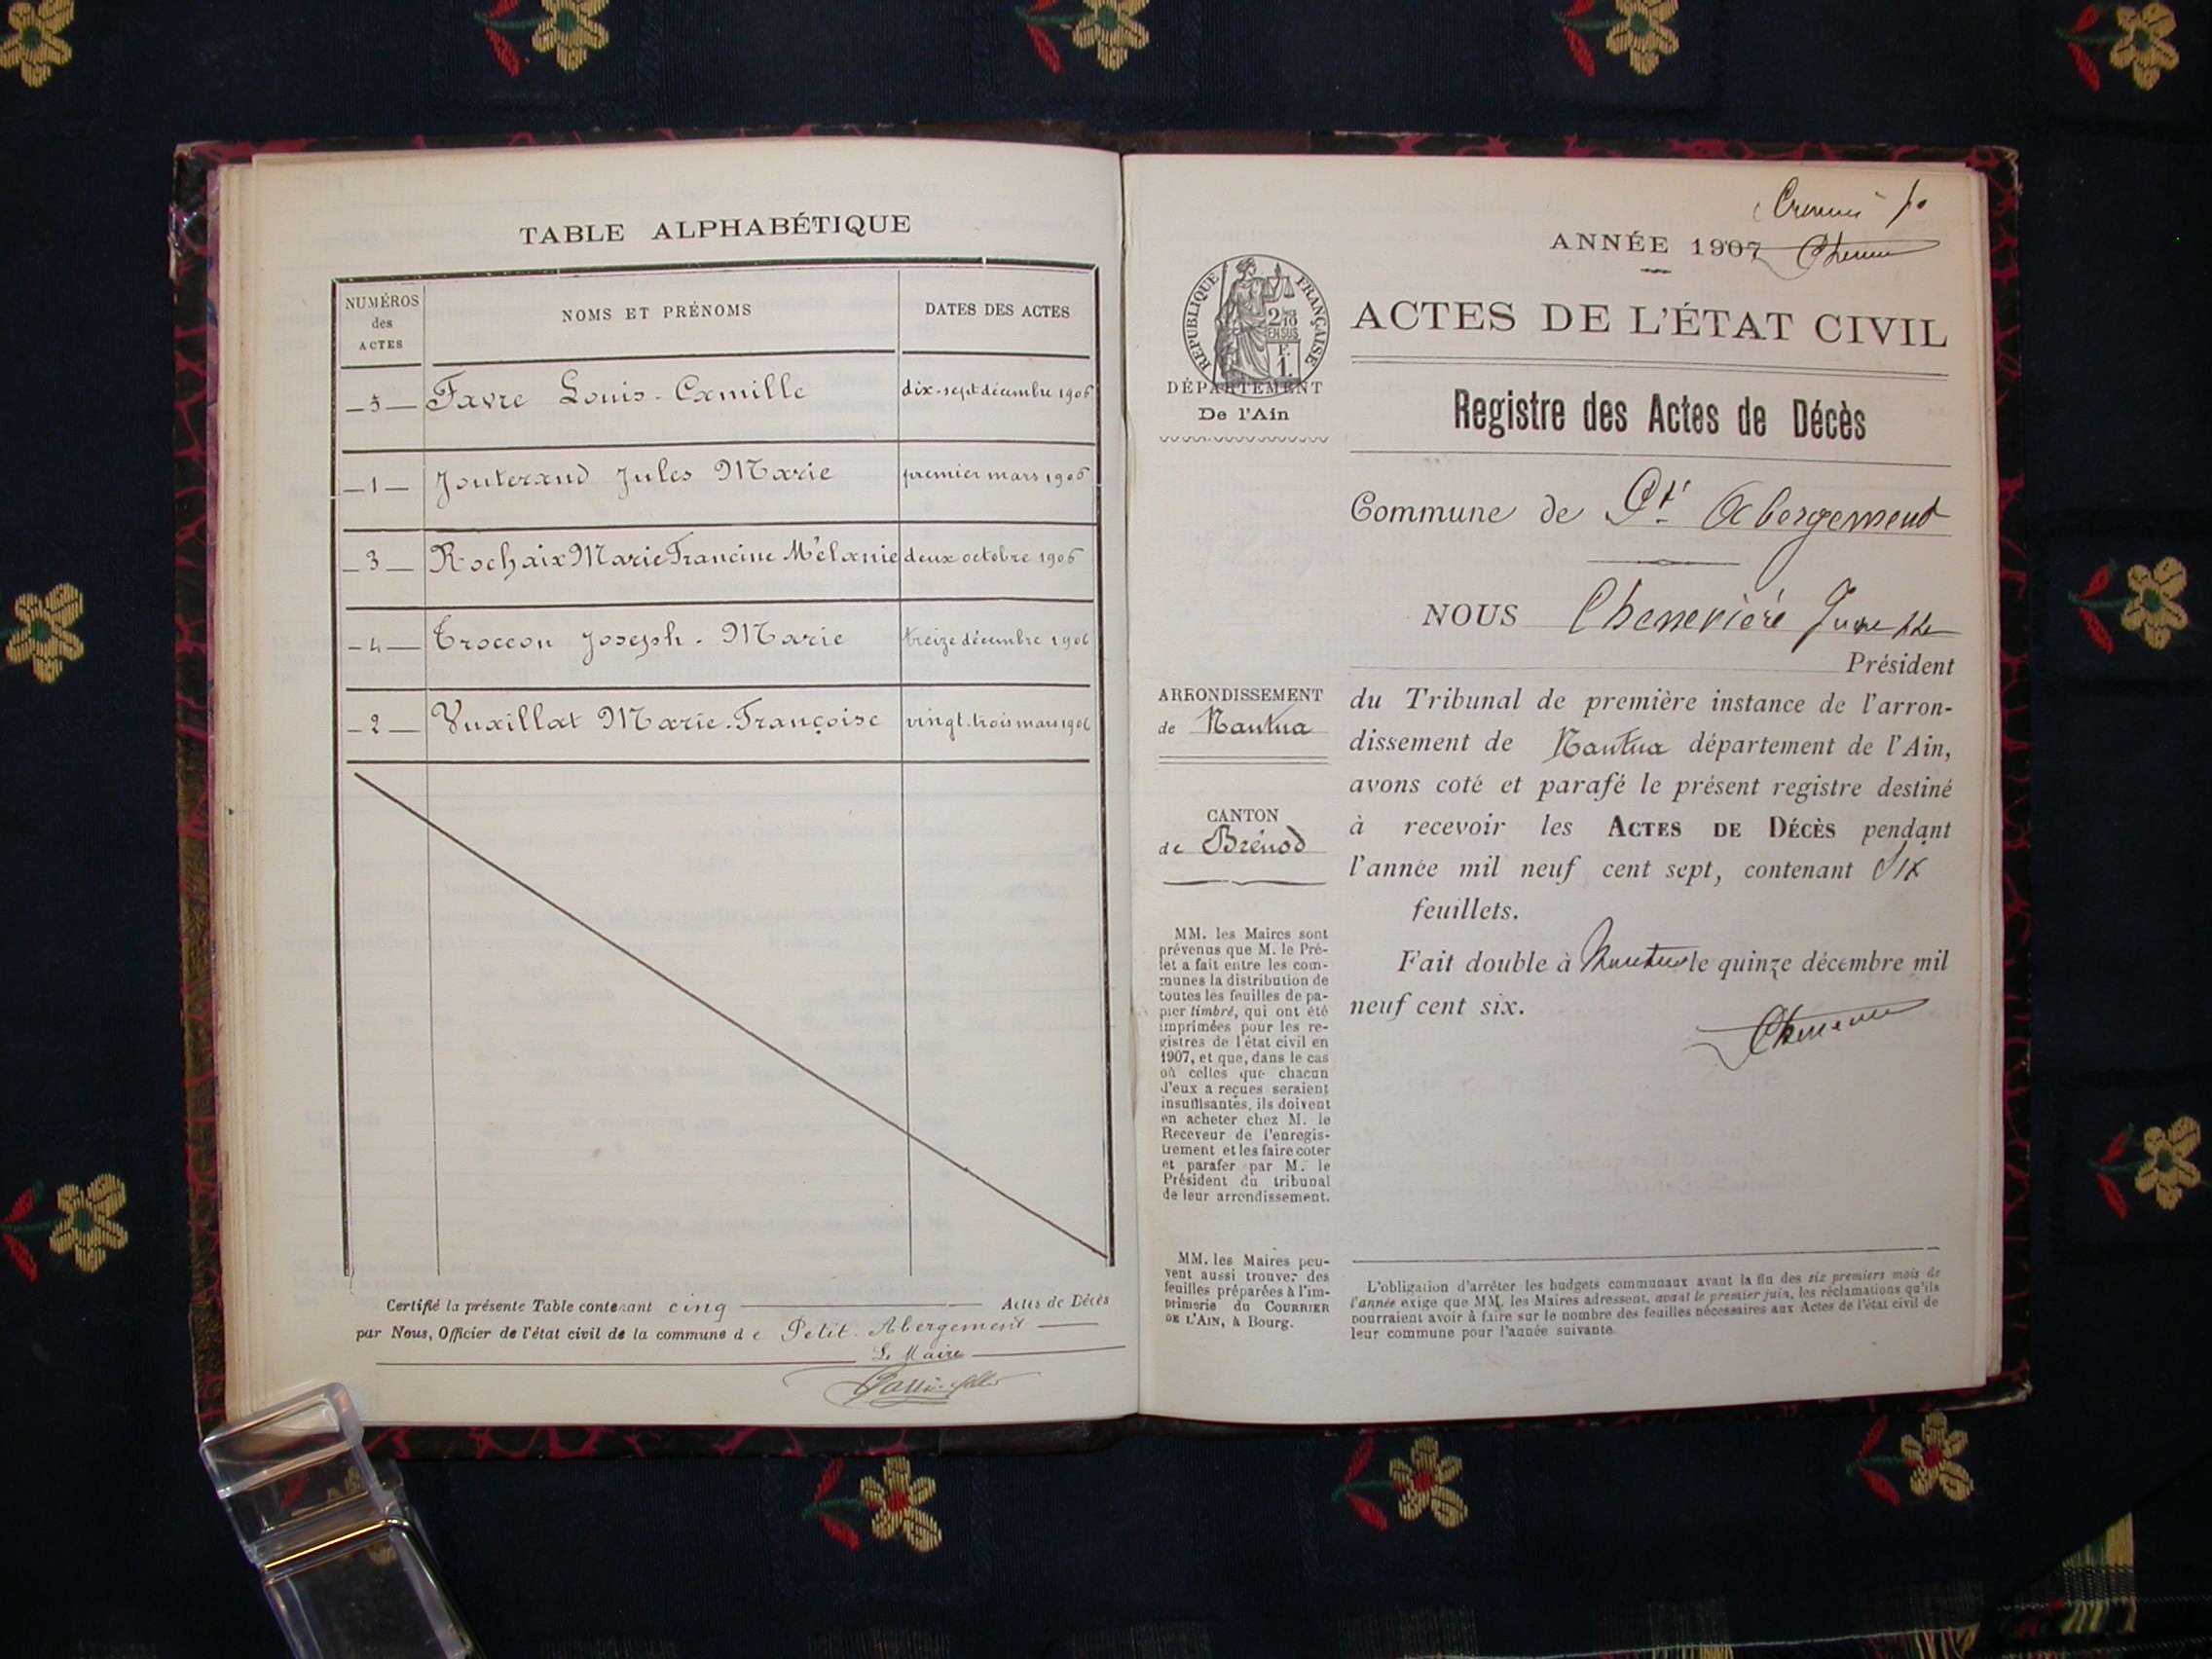 TABLE ALPHABÉTIQUE
NUMÉROS
des
ACTES
NOMS ET PRÉNOMS
DATES DES ACTES
5 Favre Louis-Camille dix-sept décembre 1906
1 Jouterand Jules Marie premier mars 1906
3 Rochaix Marie Francine Mélanie deux octobre 1906
4 Troccon Joseph-Marie treize décembre 1906
2 Vuaillat Marie-Françoise vingt-trois mars 1906
Certifié la présente Table contenant cinq Actes de Décès
par Nous, Officier de l'état civil de la commune de Petit-Abergement
Le Maire
ANNÉE 1907
RÉPUBLIQUE FRANÇAISE
2/10
EN SUS
F.
1.
DÉPARTEMENT
De l'Ain
ACTES DE L'ÉTAT CIVIL
Registre des Actes de Décès
Commune de Pt Abergement
NOUS Chenevière
Président
ARRONDISSEMENT
de Nantua
CANTON
de Brénod
du Tribunal de première instance de l'arron-
dissement de Nantua département de l'Ain,
avons coté et parafé le présent registre destiné
à recevoir les ACTES DE DÉCÈS pendant
l'année mil neuf cent sept, contenant Six
feuillets.
Fait double à Nantua le quinze décembre mil
neuf cent six.
MM. les Maires sont
prévenus que M. le Pré-
fet a fait entre les com-
munes la distribution de
toutes les feuilles de pa-
pier timbré, qui ont été
imprimées pour les re-
gistres de l'état civil en
1907, et que, dans le cas
où celles que chacun
d'eux a reçues seraient
insuffisantes, ils doivent
en acheter chez M. le
Receveur de l'enregis-
trement et les faire coter
et parafer par M. le
Président du tribunal
de leur arrondissement.
MM. les Maires peu-
vent aussi trouver des
feuilles préparées à l'im-
primerie du COURRIER
DE L'AIN, à Bourg.
L'obligation d'arrêter les budgets communaux avant la fin des six premiers mois de
l'année exige que MM. les Maires adressent, avant le premier juin, les réclamations qu'ils
pourraient avoir à faire sur le nombre des feuilles nécessaires aux Actes de l'état civil de
leur commune pour l'année suivante.